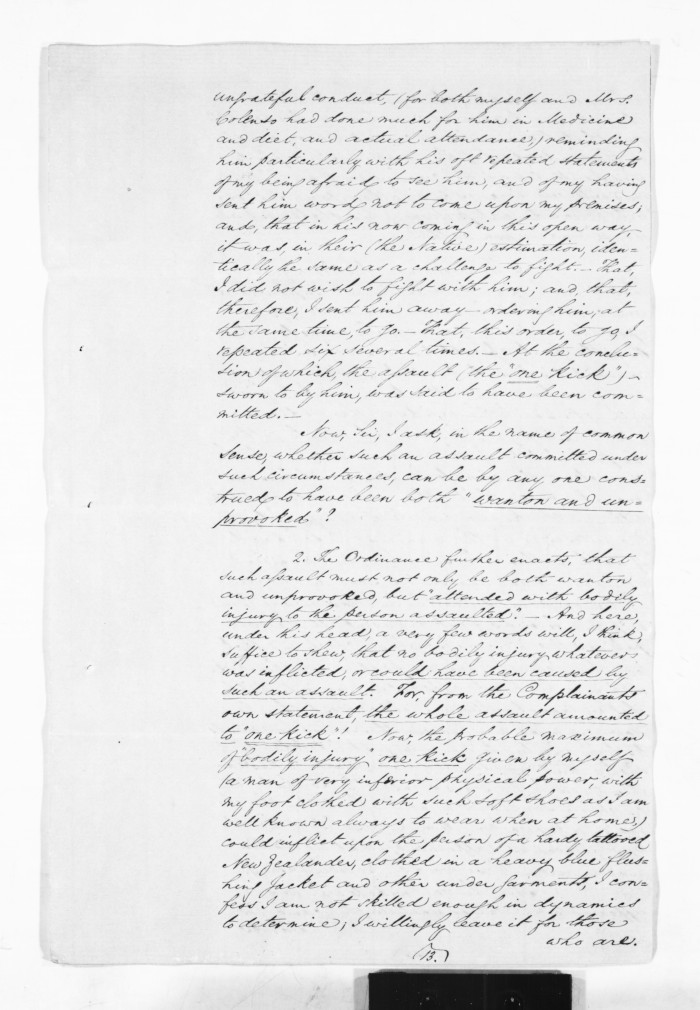 ungrateful conduct, (for both myself and Mrs.
Colenso had done much for him in Medicine
and diet, and actual attendance,) reminding
him particularly with his oft repeated statements
of my being afraid to see him, and of my having
sent him word not to come upon my premises;
and, that in his now coming in this open way,
it was, in their (the Native) estimation, iden=
tically he same as a challenge to fight. — That,
I did not wish to fight with him; and, that,
therefore, I sent him away — ordering him, at
the same time, to go. — That, this order, to go, I
repeated six several times. — At the conclu=
sion of which, the assault (the "one kick") —
sworn to by him, was said to have been com=
mitted. —
Now, Sir, I ask, in the name of common
sense, whether such an assault committed under
such circumstances, can be by any one cons=
trued to have been both "wanton and un=
provoked"?
2. The Ordinance further enacts, that
such assault must not only be both wanton
and unprovoked, but "attended with bodily
injury to the person assaulted". — And here,
under this head, a very few words will, I think,
suffice to shew, that no bodily injury whatever
was inflicted, or could have been caused by
such an assault. For, from the Complainant's
own statement, the whole assault amounted
to "one kick"! Now, the probable maximum
of "bodily injury" one kick given by myself
(a man of very inferior physical power, with
my foot clothed with such soft shoes as I am
well known always to wear when at home,)
could inflict upon the person of a hardy tattooed
New Zealander, clothed in a heavy blue flus=
hing Jacket and other under garments, I con=
fess I am not skilled enough in dynamics
to determine; I willingly leave it for those
who are.
(13.)